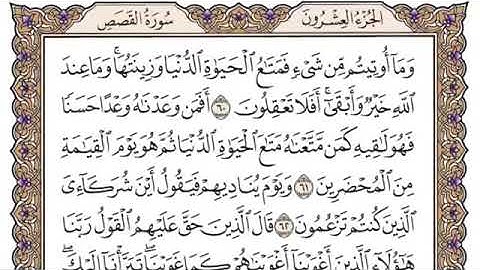 الجُزْءُ العِشْرُونَ سُورَةُ القَصَصِ
وَمَا أُوتِيتُم مِّن شَيْءٍ فَمَتَٰعُ ٱلْحَيَوٰةِ ٱلدُّنْيَا وَزِينَتُهَا ۚ وَمَا عِندَ
ٱللَّهِ خَيْرٌ وَأَبْقَىٰٓ ۚ أَفَلَا تَعْقِلُونَ ٦٠ أَفَمَن وَعَدْنَٰهُ وَعْدًا حَسَنًا
فَهُوَ لَٰقِيهِ كَمَن مَّتَّعْنَٰهُ مَتَٰعَ ٱلْحَيَوٰةِ ٱلدُّنْيَا ثُمَّ هُوَ يَوْمَ ٱلْقِيَٰمَةِ
مِنَ ٱلْمُحْضَرِينَ ٦١ وَيَوْمَ يُنَادِيهِمْ فَيَقُولُ أَيْنَ شُرَكَآءِىَ
ٱلَّذِينَ كُنتُمْ تَزْعُمُونَ ٦٢ قَالَ ٱلَّذِينَ حَقَّ عَلَيْهِمُ ٱلْقَوْلُ رَبَّنَا
هَٰٓؤُلَآءِ ٱلَّذِينَ أَغْوَيْنَآ أَغْوَيْنَٰهُمْ كَمَا غَوَيْنَا ۖ تَبَرَّأْنَآ إِلَيْكَ ۖ